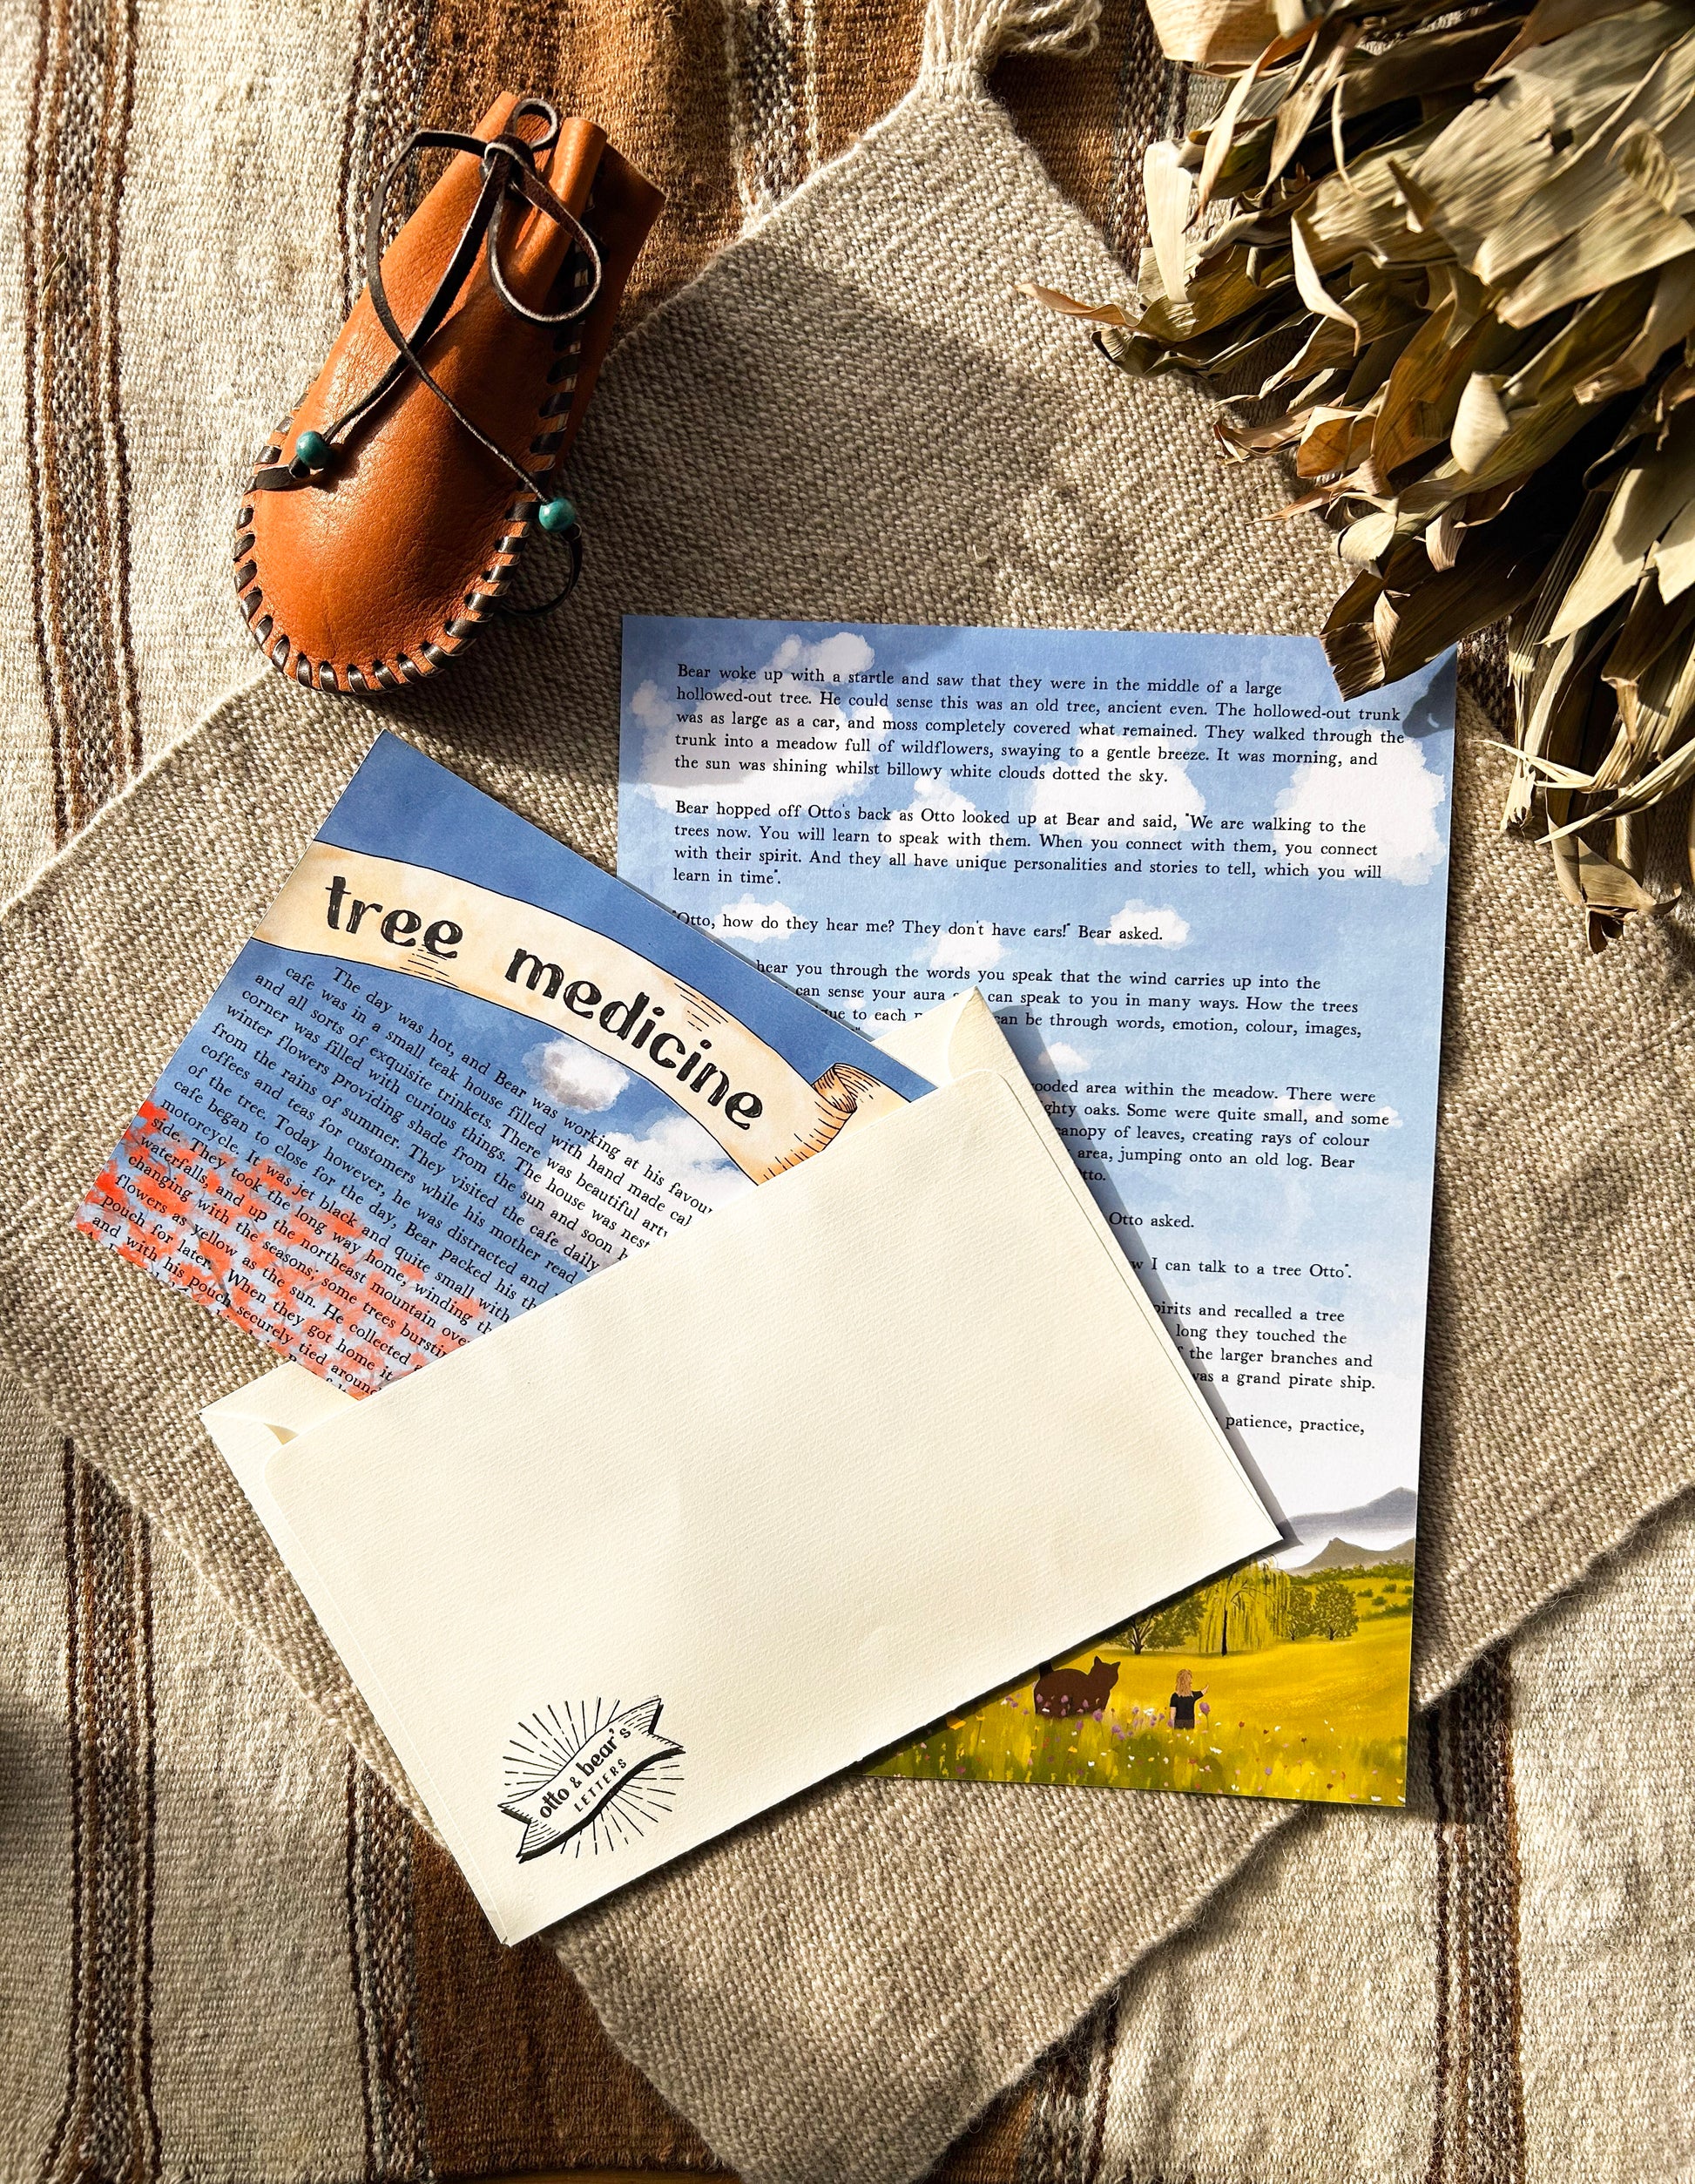 Bear woke up with a startle and saw that they were in the middle of a large
hollowed-out tree. He could sense this was an old tree, ancient even. The hollowed-out trunk
was as large as a car, and moss completely covered what remained. They walked through the
trunk into a meadow full of wildflowers, swaying to a gentle breeze. It was morning, and
the sun was shining whilst billowy white clouds dotted the sky.
Bear hopped off Otto's back as Otto looked up at Bear and said, "We are walking to the
trees now. You will learn to speak with them. When you connect with them, you connect
with their spirit. And they all have unique personalities and stories to tell, which you will
learn in time".
"Otto, how do they hear me? They don't have ears!" Bear asked.
hear you through the words you speak that the wind carries up into the
can sense your aura can speak to you in many ways. How the trees
to each can be through words, emotion, colour, images,
area within the meadow. There were
oaks. Some were quite small, and some
canopy of leaves, creating rays of colour
area, jumping onto an old log. Bear
Otto asked.
I can talk to a tree Otto".
and recalled a tree
long they touched the
the larger branches and
was a grand pirate ship.
patience, practice,
tree medicine
The day was hot, and Bear was working at his
cafe was in a small teak house filled with hand made
and all sorts of exquisite trinkets. There was beautiful
corner was filled with curious things. The house was
winter flowers providing shade from the sun and soon
from the rains of summer. They visited the cafe daily
coffees and teas for customers while his mother read
of the tree. Today however, he was distracted and
cafe began to close for the day, Bear packed his
motorcycle. It was jet black and quite small with
side. They took the long way home, winding
waterfalls, and up the northeast mountain
changing with the seasons; some trees
flowers as yellow as the sun. He collected
pouch for later. When they got home it
and with his pouch securely tied
otto & bear's
LETTERS